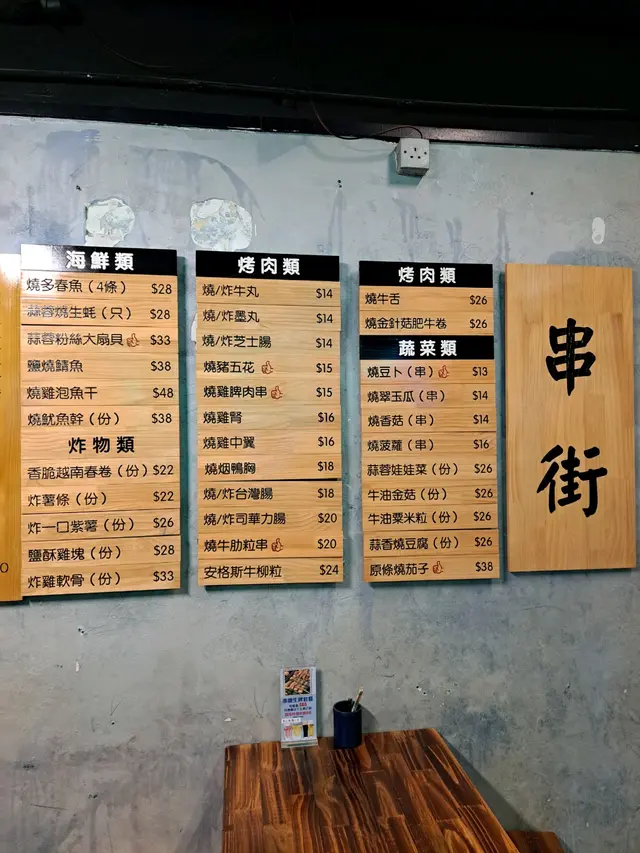 海鮮類
燒多春魚（4條） $28
蒜蓉燒生蚝（只） $28
蒜蓉粉絲大扇貝 $33
鹽燒鯖魚 $38
燒雞泡魚干 $48
燒魷魚幹（份） $38
炸物類
香脆越南春卷（份） $22
炸薯條（份） $22
炸一口紫薯（份） $26
鹽酥雞塊（份） $28
炸雞軟骨（份） $33
烤肉類
燒/炸牛丸 $14
燒/炸墨丸 $14
燒/炸芝士腸 $14
燒豬五花 $15
燒雞脾肉串 $15
燒雞腎 $16
燒雞中翼 $16
燒烟鴨胸 $18
燒/炸台灣腸 $18
燒/炸司華力腸 $20
燒牛肋粒串 $20
安格斯牛柳粒 $24
烤肉類
燒牛舌 $26
燒金針菇肥牛卷 $26
蔬菜類
燒豆卜（串） $13
燒翠玉瓜（串） $14
燒香菇（串） $14
燒菠蘿（串） $16
蒜蓉娃娃菜（份） $26
牛油金菇（份） $26
牛油粟米粒（份） $26
蒜香燒豆腐（份） $26
原條燒茄子 $38
串街